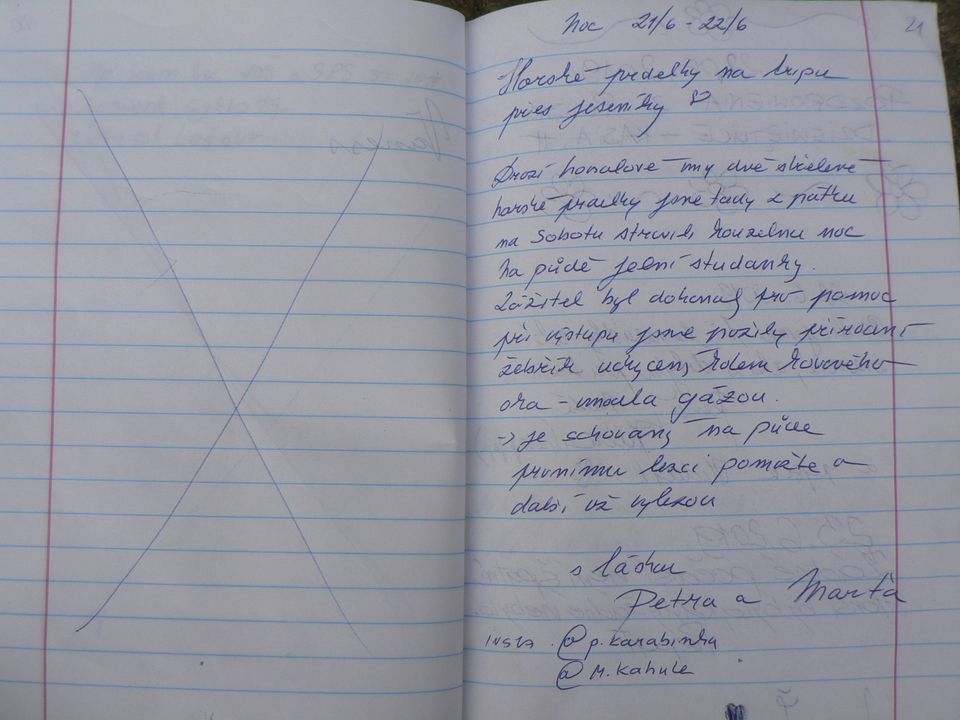 21
Noc 21/6 - 22/6
Horské prdelky na tripu
přes jeseníky ♡
Drazí honalové my dvě střelené
horské prdelky jsme tady z pátku
na Sobotu strávili kouzelnu noc
na půdě jelní studánky.
Zážitek byl dokonalý pro pomoc
při výstupu jsme použily přírodní
žebřík uchycený kolem kovového
oka - omotla gázou.
-> je schovaný na půde
prvnímu lezci pomůže a
další už vylezou
s láskou
Petra a Marťa
INSTA. @p.karabinka
@M.Kahule